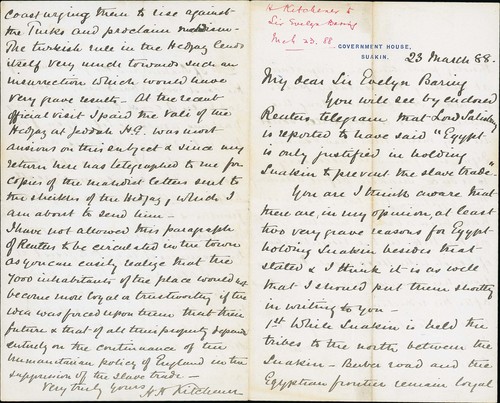 H Kitchener to
Sir Evelyn Baring
Mch 23. 88
GOVERNMENT HOUSE,
SUAKIN.
23 March 88.
My dear Sir Evelyn Baring
You will see by enclosed
Reuters telegram that Lord Salisbury
is reported to have said "Egypt
is only justified in holding
Suakin to prevent the slave trade."
You are I think aware that
there are, in my opinion, at least
two very grave reasons for Egypt
holding Suakin besides that
stated & I think it is as well
that I should put them shortly
in writing to you –
1st While Suakin is held the
tribes to the north between the
Suakin – Berber road and the
Egyptian frontier remain loyal
coast urging them to rise against
the Turks and proclaim mahdism –
The Turkish rule in the Hedjaz lends
itself very much towards such an
insurrection which would have
very grave results – At the recent
official visit I paid the Vali of the
Hedjaz at Jeddah H.E. was most
anxious on this subject & since my
return here has telegraphed to me for
copies of the mahdist letters sent to
the sheikhs of the Hedjaz, which I
am about to send him –
I have not allowed this paragraph
of Reuters to be circulated in the town
as you can easily realize that the
7000 inhabitants of the place would not
become more loyal & trustworthy if the
idea was forced upon them that their
future & that of all their property depend
entirely on the continuance of the
humanitarian policy of England in the
suppression of the slave trade –
Very truly yours
H H Kitchener